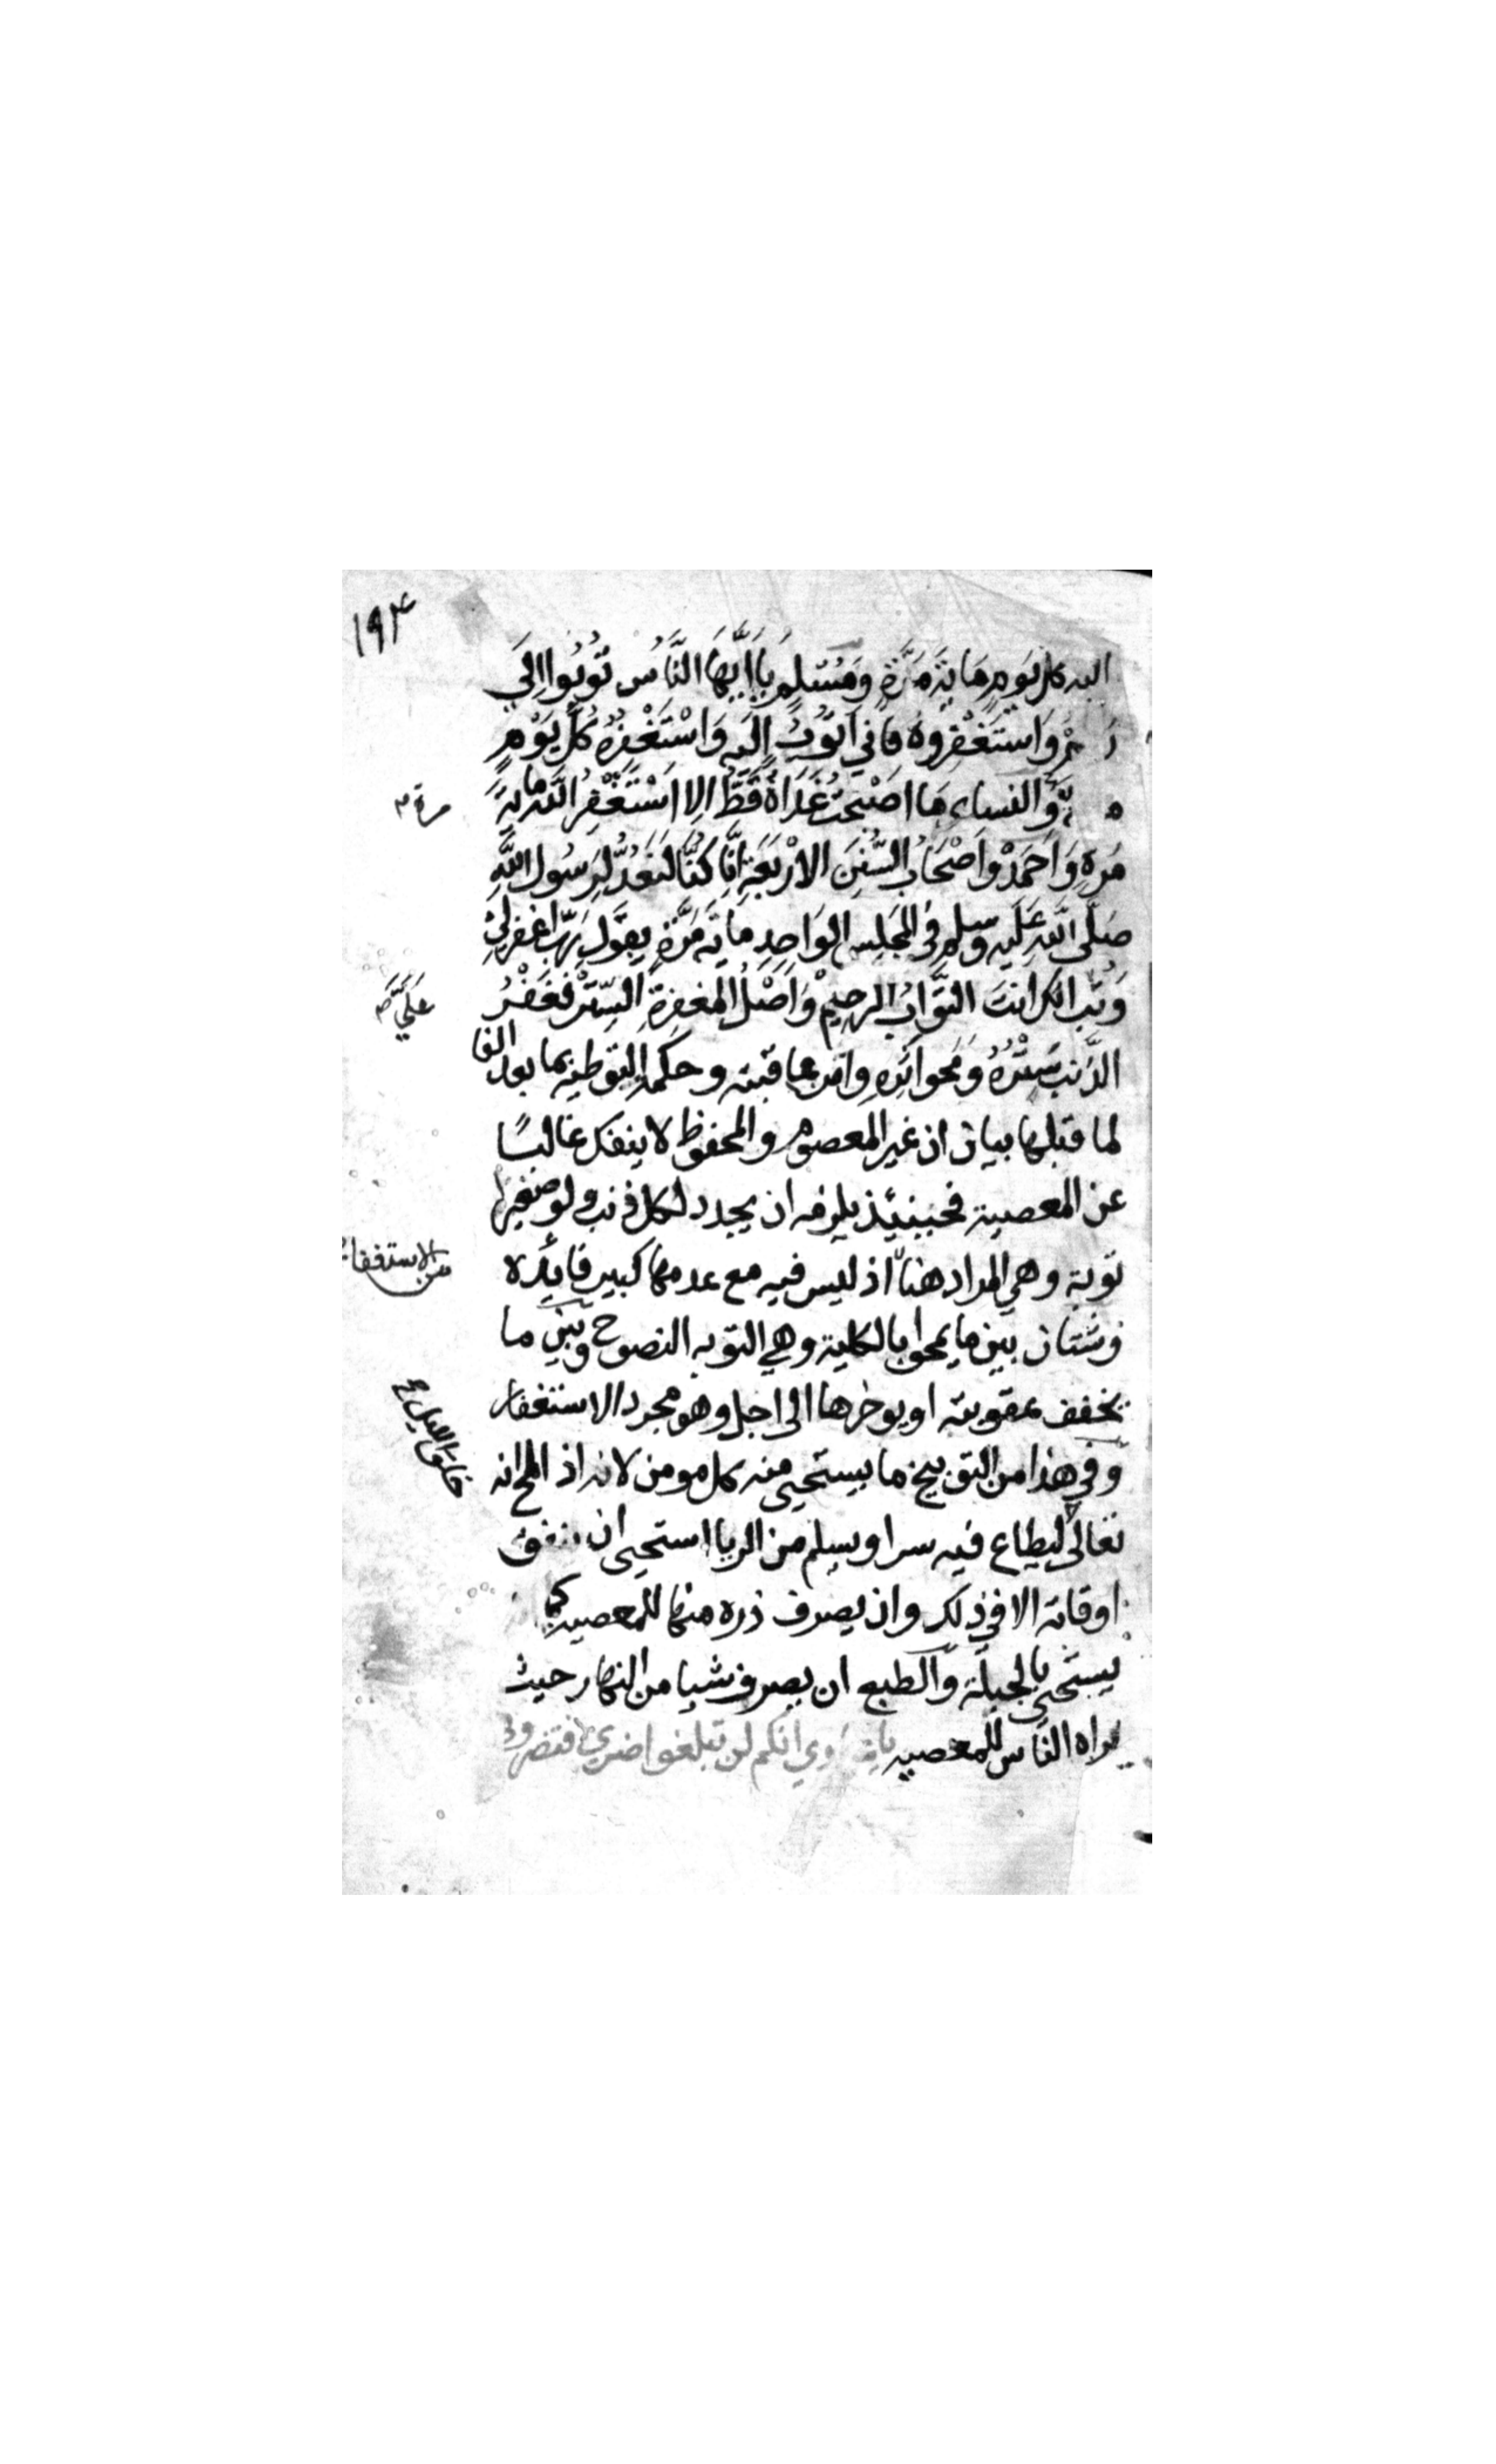 ١٩٢
اليه كل يوم مَايَة مَرَّةٍ وَمُسْلِم يَا اَيُّهَا النَّاسُ تُوبُوا اِلَى
وَاسْتَغْفِرُوهُ فاني اَتُوبُ اِلَيهِ وَاسْتَغْفِرُهُ كُلَّ يَوْمٍ
مرة
وَالنساءى مَا اصْبَحتُ غَدَاةً قَطُّ اِلا اسْتَغْفِرُ اللّه مايَةَ
مَرةٍ وَاَحمَدْ وَاَصْحَابُ السُّنَنِ الارْبَعَةِ اِنَّا كُنَّا لَنَعُدُّ لِرَسُول اللَّهِ
صَلَّى اللّه عَلَيهِ وسلم في المجَلِسِ الوَاحِدِ مَايَة مَرَّةٍ يقول رَبِّ اغفر لِي
وَتُب اِنك انتَ التَّوَّابُ الرحيم وَاَصْلُ المغفِرَةِ السِّتْرُ فَغَفْرُ
عَلَيَّ
الذَّنب سَتْرُهُ وَمحوُ اَثَرِهِ وامن عاقبته وحكمة التوطية بما بعد الفا
لما قبلها بيان ان غير المعصوم والمحفوظ لا ينفك غالبًا
عن المعصية فحينيئذ يلزمه ان يجدد لكل ذنب ولو صغيرا
توبة وهي المراد هنا اذ ليس فيه مع عدمها كبير فايدة
من الاستغفار
وشتان بين ما يمحوا بالكلية وهي التوبه النصوح وبين ما
يخفف عقوبته او يوخرها الى اجل وهو مجرد الاستغفار
وفي هذا من التوبيخ ما يستحيى منه كل مومن لانه اذ المح انه
خلق الليل
تعالى ليطاع فيه سرا ويسلم من الريا استحيى ان ينفق
اوقاته الا في ذلك وان يصرف ذره منها للمعصيه كما
يستحى بالجبلة والطبع ان يصرف شيا من النهار حيث
يراه الناس للمعصيه يا عبادي انكم لن تبلغوا ضري فتضروني